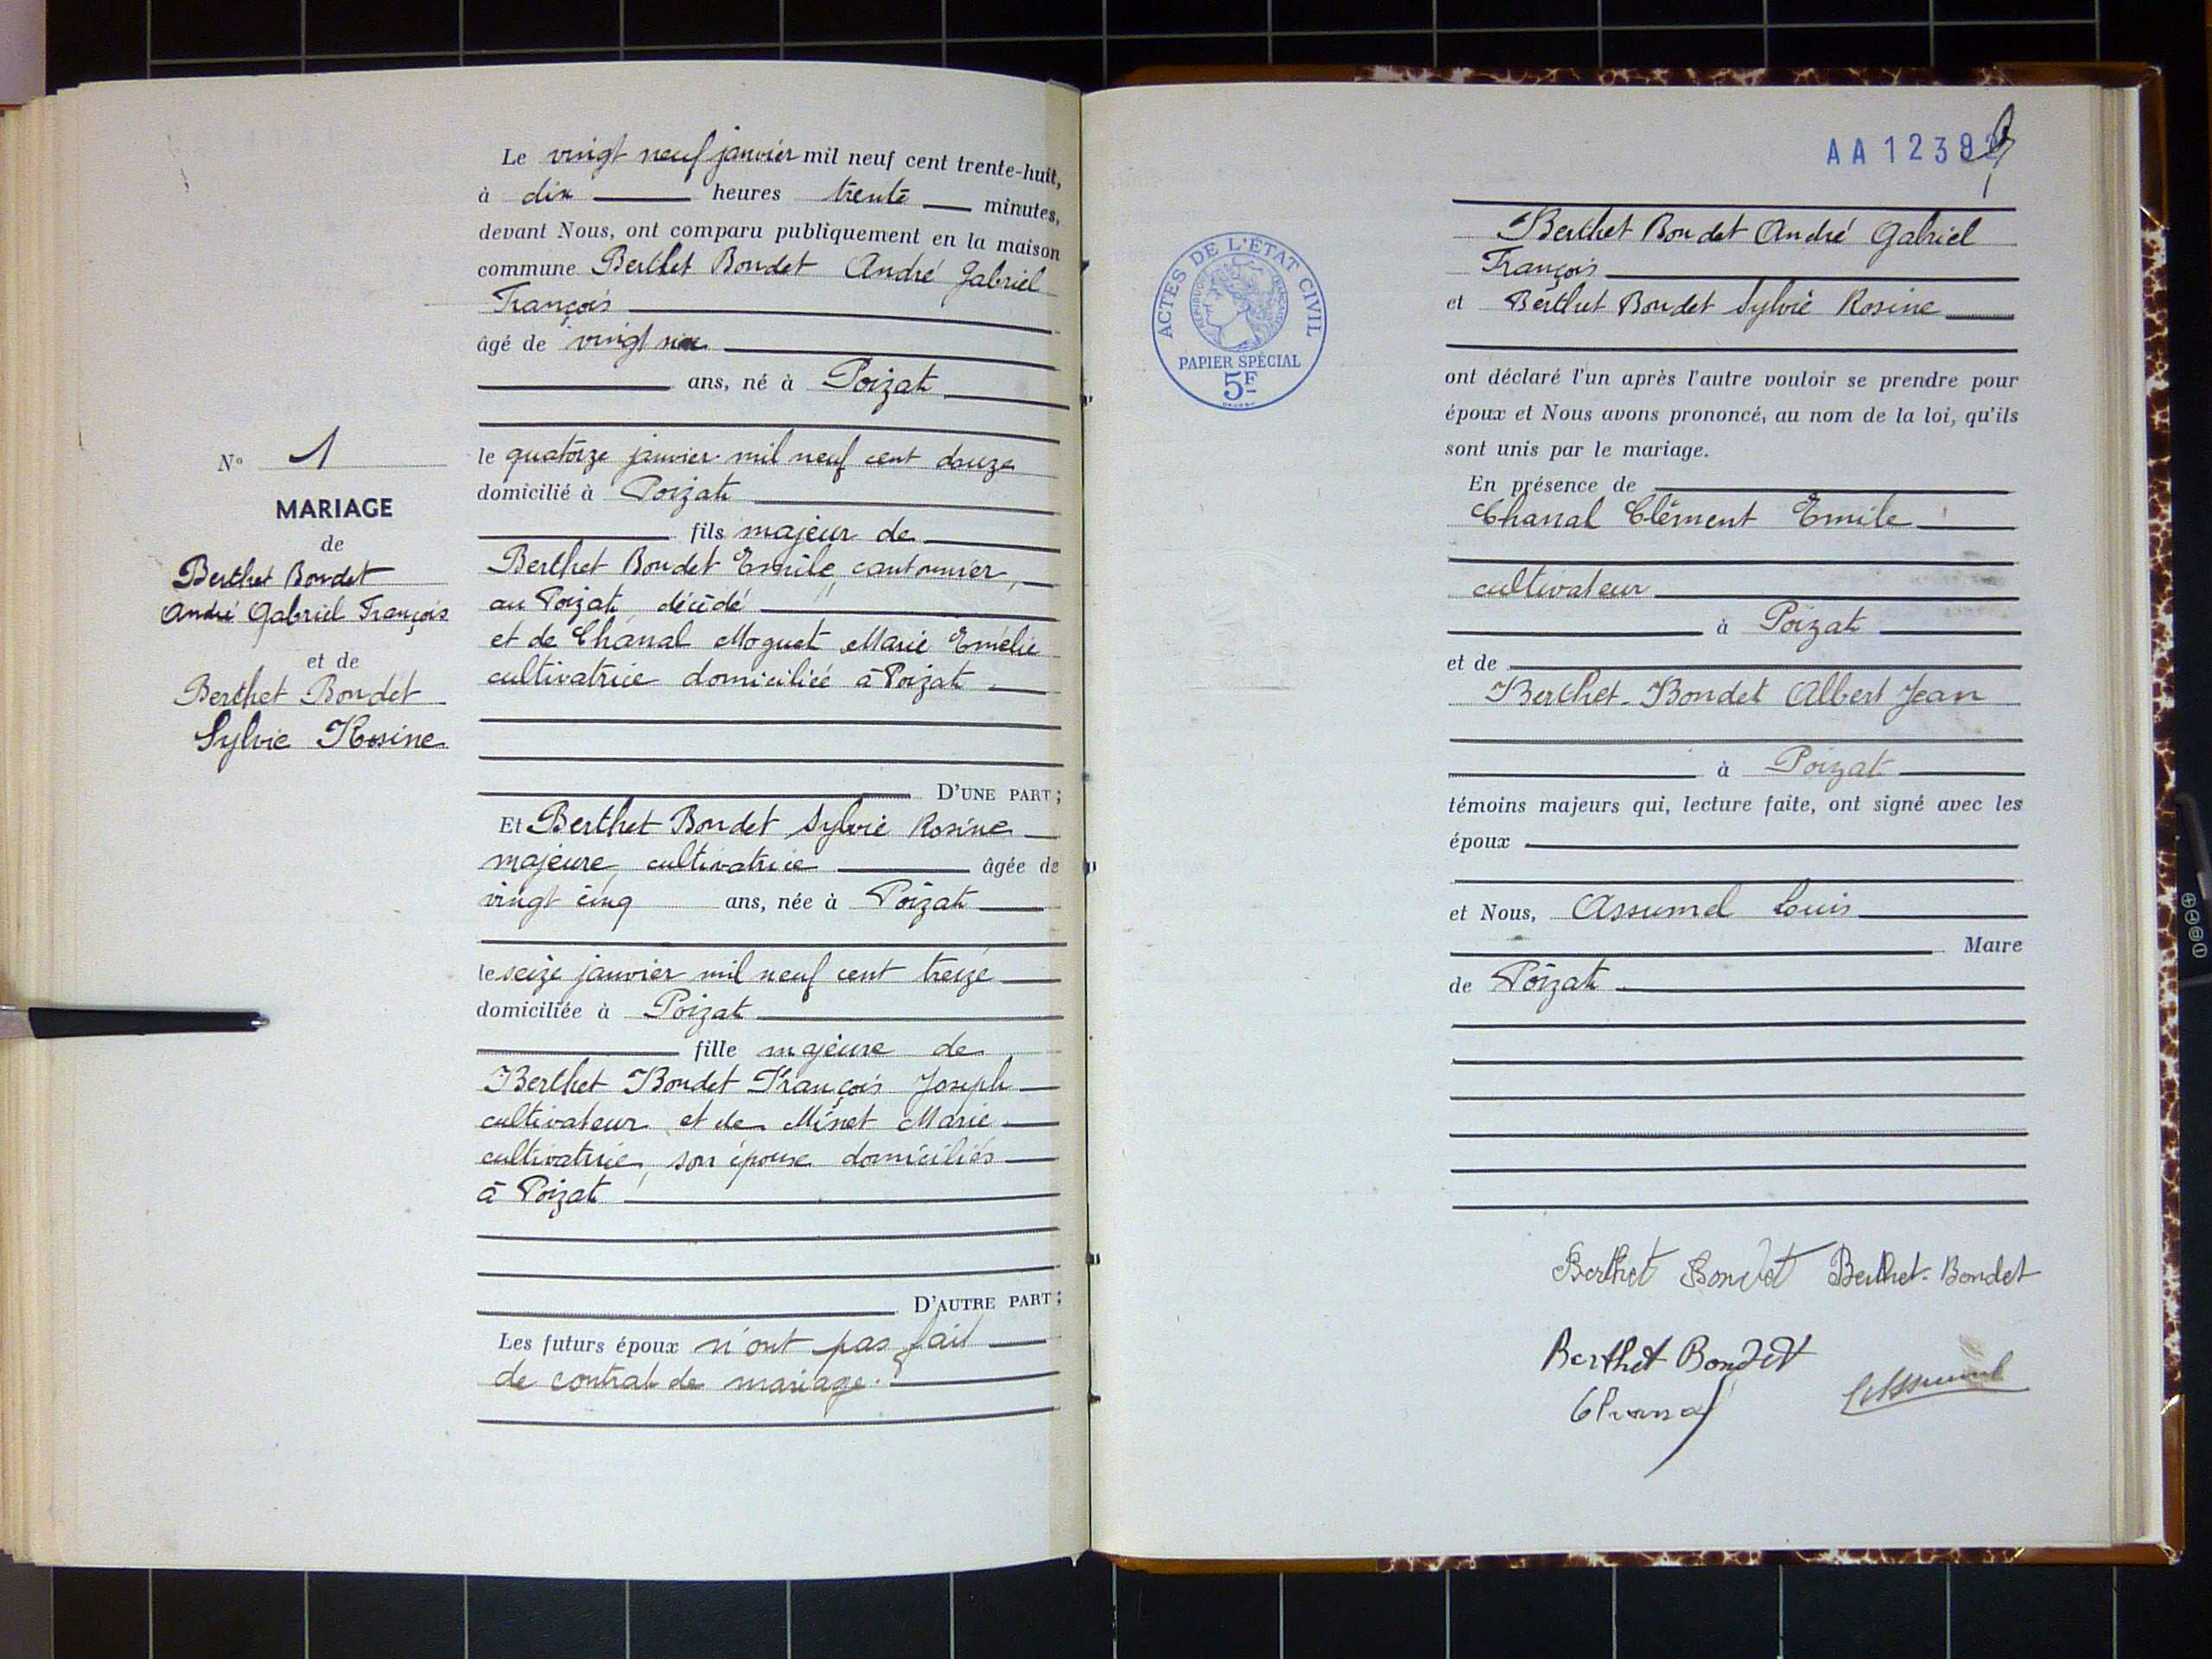 Le vingt neuf janvier mil neuf cent trente-huit,
à dix heures trente minutes,
devant Nous, ont comparu publiquement en la maison
commune Berthet Bondet André Gabriel
François
âgé de vingt six
ans, né à Poizat
le quatorze janvier mil neuf cent douze
domicilié à Poizat
fils majeur de
Berthet Bondet Emile, cantonnier,
au Poizat, décédé
et de Chanal Moguet Marie Emélie
cultivatrice domiciliée à Poizat
D'UNE PART;
Et Berthet Bondet Sylvie Rosine
majeure, cultivatrice âgée de
vingt cinq ans, née à Poizat
le seize janvier mil neuf cent treize
domiciliée à Poizat
fille majeure de
Berthet Bondet François Joseph
cultivateur et de Minet Marie
cultivatrice, son épouse domiciliés
à Poizat
D'AUTRE PART;
Les futurs époux n'ont pas fait
de contrat de mariage.
N° 1
MARIAGE
de
Berthet Bondet
André Gabriel François
et de
Berthet Bondet
Sylvie Rosine
AA 1239
ACTES DE L'ÉTAT CIVIL
RÉPUBLIQUE FRANÇAISE
PAPIER SPÉCIAL
5F
Berthet Bondet André Gabriel
François
et Berthet Bondet Sylvie Rosine
ont déclaré l'un après l'autre vouloir se prendre pour
époux et Nous avons prononcé, au nom de la loi, qu'ils
sont unis par le mariage.
En présence de
Chanal Clément Emile
cultivateur
à Poizat
et de
Berthet-Bondet Albert Jean
à Poizat
témoins majeurs qui, lecture faite, ont signé avec les
époux
et Nous, Assumel Louis
Maire
de Poizat
Berthet Bondet Berthet-Bondet
Berthet Bondet
Chanal
LAssumel